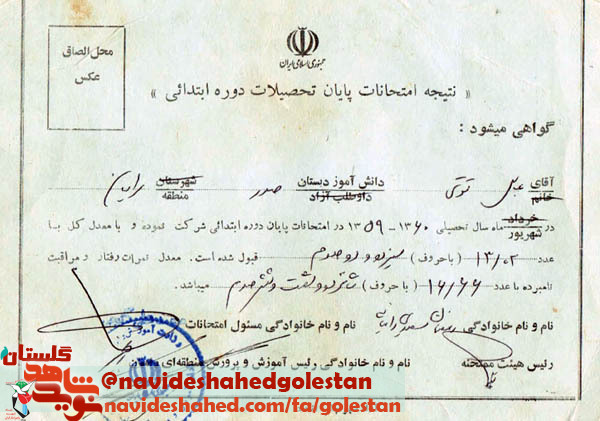 محل الصاق
عکس
جمهوری اسلامی ایران
« نتیجه امتحانات پایان تحصیلات دوره ابتدائی »
گواهی میشود :
آقای
خانم
عباس
دانش آموز دبستان
داوطلب آزاد
صدور
شهرستان
منطقه
رامیان
در خرداد
شهریور
ماه سال تحصیلی ۱۳۶۰ - ۱۳۵۹ در امتحانات پایان دوره ابتدائی شرکت نموده و با معدل کل با
عدد ۱۳/۰۲ ( با حروف ) سیزده و دو صدم قبول شده است . معدل نمرات رفتار و مراقبت
نامبرده با عدد ۱۶/۶۶ ( با حروف ) شانزده و شصت و شش صدم میباشد .
نام و نام خانوادگی نام و نام خانوادگی مسئول امتحانات
رئیس هیئت ممتحنه نام و نام خانوادگی رئیس آموزش و پرورش منطقه‌ای
نوید شاهد گلستان
@navideshahedgolestan
navideshahed.com/fa/golestan